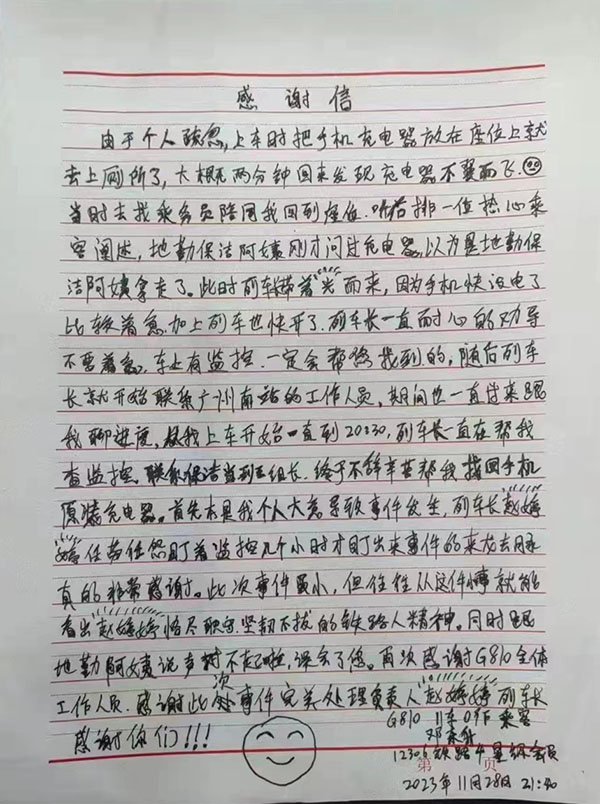 感谢信
由于个人疏忽,上车时把手机充电器放在座位上就
去上厕所了,大概两分钟回来发现充电器不翼而飞.
当时去找乘务员陪同我回到座位.听后排一位热心乘
客阐述,地勤保洁阿姨刚才问过充电器,以为是地勤保
洁阿姨拿走了。此时列车长带着光而来,因为手机快没电了
比较着急.加上列车也快开了.列车长一直耐心的劝导
不要着急,车上有监控.一定会帮您找到的,随后列车
长就开始联系广州南站的工作人员,期间也一直过来跟
我聊进度,从我上车开始一直到20:30,列车长一直在帮我
查监控。联系保洁当班组长.终于不辞辛苦帮我找回手机
原装充电器。首先本是我个人大意导致事件发生,列车长赵婷
婷任劳任怨盯着监控几个小时才盯出来事件的来龙去脉
真的非常感谢。此次事件虽小,但往往从这件小事就能
看出赵婷婷恪尽职守.坚韧不拔的铁路人精神。同时跟
地勤阿姨说声对不起啦,误会了您。再次感谢G810全体
工作人员.感谢此次事件完美处理负责人赵婷婷列车长
感谢你们!!!
G810 11车 09F 乘客
12306铁路 星级会员
第 页
2023年11月28日 21:40